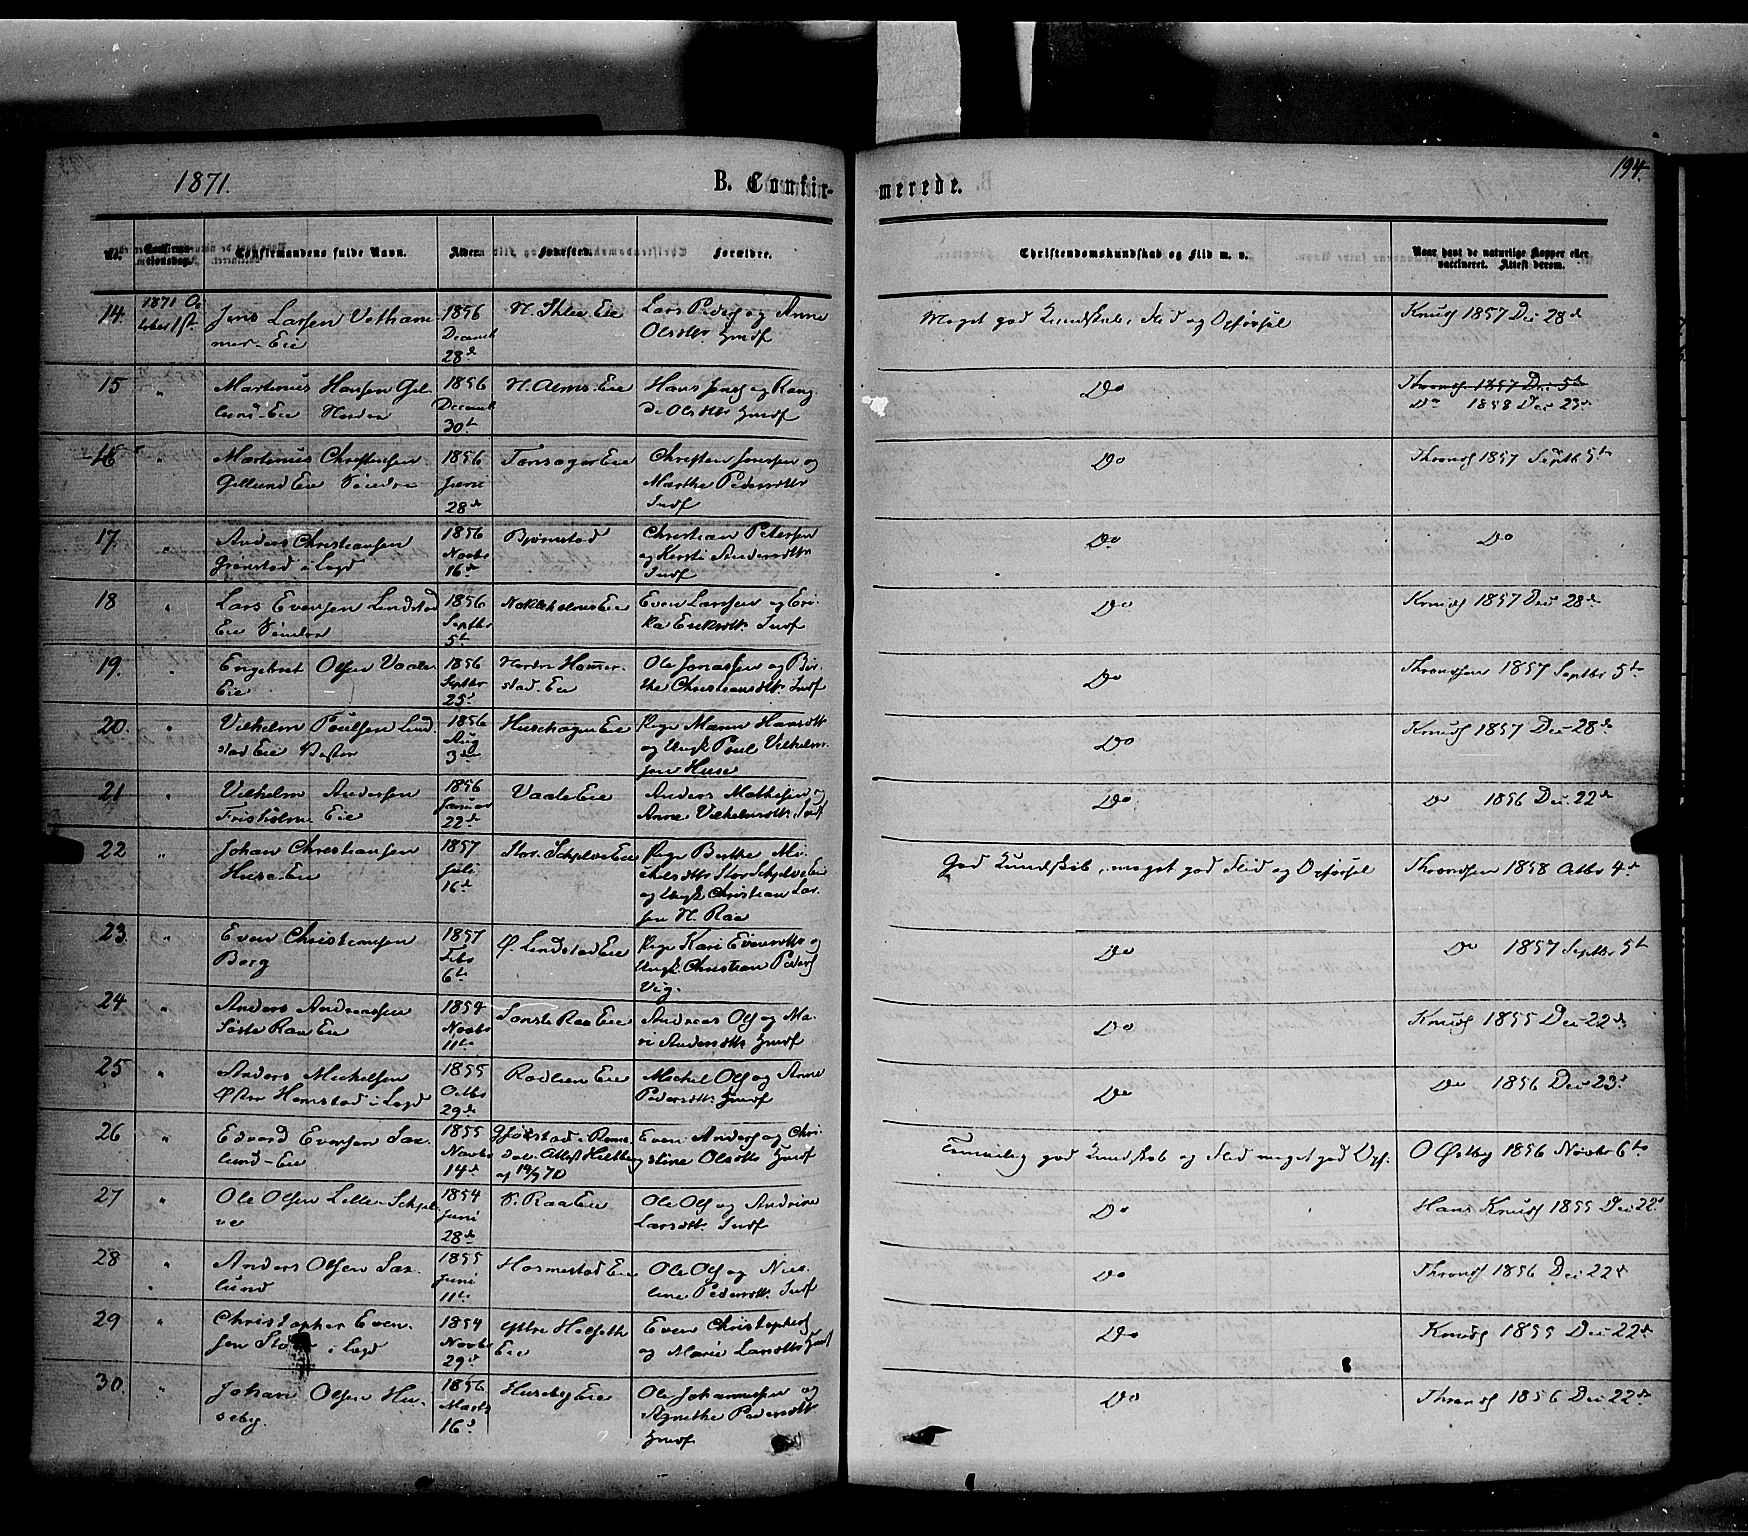 1871.
B. Confir-
merede.
194.
No.
Confirma-
tionsdag.
Confirmandens fulde Navn.
Alder.
Fødested.
Forældre.
Christendomskundskab og Flid m. v.
Naar havt de naturlige Kopper eller
vaccineret. Attest derom.
14. 1871 Oc
tober 1st. Jens Larsen Vetham
mer-Eie
1856
Decemb
28de
N. Ihle-Eie
Lars Peders og Anne
Olsdttr. Gmdf
Meget god Kundskab, Flid og Opførsel
Knuds 1857 Dec 28de
15 " Martinus Hansen Gil
lund-Eie Nordre
1856
Decemb
30te
N. Alms-Eie
Hans Jens og Rang
di Olsdttr Gmdf
Do
Thronds 1857 Dec 5te
Do 1858 Dec 23de
16 " Martinus Christensen
Gillund Eie Søndre
1856
Juni
28de
Tonsager Eie
Christen Jensen og
Marthe Pedersdttr
Indf
Do
Thronds 1857 Septb 5te
17. " Anders Christiansen
Grønstad i Legd
1856
Novbr
16de
Bjørnstad
Christian Petersen
og Kersti Andersdttr
Indf
Do
Do
18 " Lars Evensen Lindstad
Eie Søndre
1856
Septbr
5te
Nokleholms Eie
Even Larsen og Eri-
ka Eriksdttr. Indf
Do
Knuds 1857 Dec 28de
19. " Engebret Olsen Vaale
Eie
1856
Septbr
25de
Nordre Hommer-
stad-Eie
Ole Jonassen og Bir-
the Christiansdttr. Indf
Do
Throndsen 1857 Septbr 5te
20. " Vilhelm Poulsen Lind
stad Eie Vestre
1856
Aug
3de
Husehagen Eie
Pige Maren Hansdtt
og Ungk Poul Vilhelm-
sen Huse
Do
Knuds 1857 Dec 28de
21 " Vilhelm Andersen
Frisholm Eie
1856
Januar
22de
Vaale Eie
Anders Mathesen og
Anne Vilhelmsdttr. Indf
Do
Do 1856 Dec 22de
22 " Johan Christiansen
Huse-Eie
1857
Juli
16de
Stor. Schjelve Eie
Pige Berthe Mi-
chelsdttr Stor Schjelve Eie
og Ungk Christian Lar-
sen N. Raa
God Kundskab, meget god Flid og Opførsel
Throndsen 1858 Octbr 4de
23. " Even Christiansen
Berg
1857
Febr
6te
Ø. Lindstad Eie
Pige Kari Evensdttr og
Ungk Christian Peders
Vig.
Do
Do 1857 Septbr 5te
24 " Anders Andreassen
Søste Raa Eie
1854
Novbr
11te
Sønste Raa Eie
Andreas Ols og Ma-
ri Andersdttr Gmdf
Do
Knuds 1855 Dec 22de
25 " Anders Michelsen
Østre Homstad i Legd
1855
Octbr
29de
Rodlien Eie
Michel Ols og Anne
Pedersdttr. Gmdf
Do
Do 1856 Dec 23de
26 " Edvard Evensen Sax-
lund-Eie
1855
Novbr
14de
Gjøkstad i Rome-
dal. Attest Heltberg
af 19/9 70
Even Anders og Chri-
stine Olsdttr Gmdf
Temmelig god Kundskab og Flid meget god Opf.
O Østby 1856 Novbr 6te
27 " Ole Olsen Lille-Schjel
ve
1854
Juni
28de
S. Raa Eie
Ole Ols og Andrine
Larsdttr. Indf
Do
Hans Knuds 1855 Dec 22de
28 " Anders Olsen Sax-
lund
1855
Juni
11te
Hosmestad Eie
Ole Ols og Nico-
line Pedersdttr. Indf
Do
Thronds 1856 Dec 22de
29 " Christopher Even-
sen i Legd
1854
Novbr
29de
Ystre Helseth
Eie
Even Christophers
og Marie Larsdttr Gmdf
Do
Knuds 1855 Dec 22de
30. " Johan Olsen Hu-
seby.
1856
Marts
16de
Huseby Eie
Ole Johannessen og
Agnethe Pedersdttr
Gmdf
Do
Thronds 1856 Dec 22de